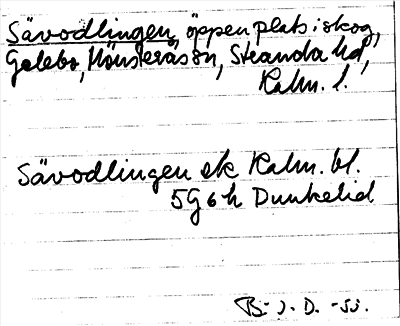 Sävodlingen, öppen plats i skog,
Galebo, Mönsteråsson, Stranda hd,
Kalm. l.
Sävodlingen ek Kalm. bl.
5G6h Dunkelid
B. J. D. -53.